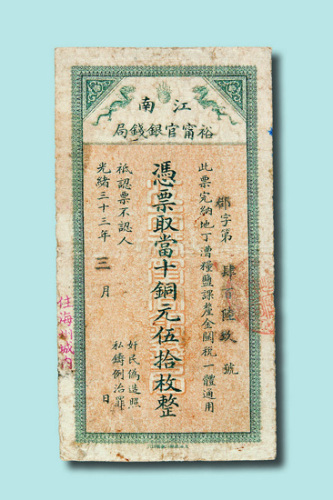 江南
裕甯官銀錢局
此票完納地丁漕糧鹽課釐金關稅一體通用
鄒字第肆百陸玖號
憑票取當十銅元伍拾枚整
祗認票不認人
奸民偽造照
私鑄例治罪
光緒三十三年三月 日
住海 城內